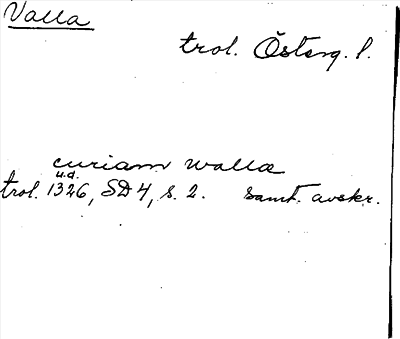 Valla
trol. Österg. l.
curiam walla
u.d.
trol. 1326, SD 4, s. 2. samt. avskr.